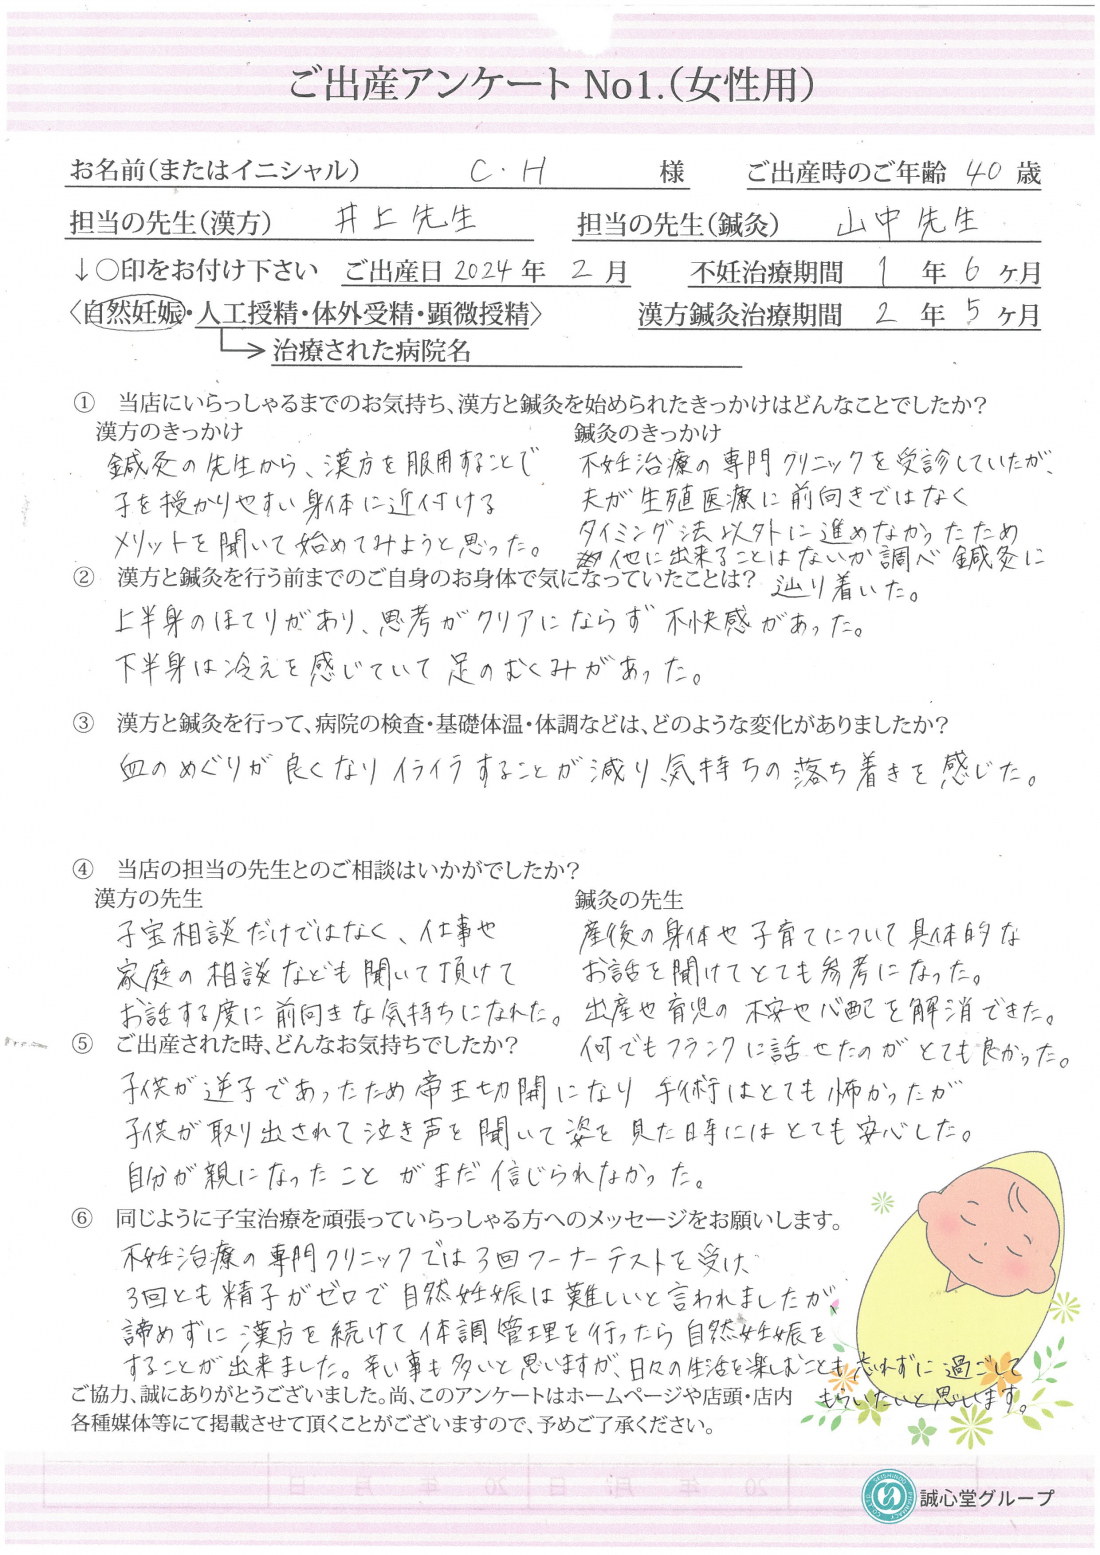 ご出産アンケート No1.(女性用)
お名前(またはイニシャル) C・H 様 ご出産時のご年齢 40 歳
担当の先生(漢方) 井上先生 担当の先生(鍼灸) 山中先生
↓○印をお付け下さい ご出産日 2024 年 2 月 不妊治療期間 1 年 6 ヶ月
〈自然妊娠・人工授精・体外受精・顕微授精〉 漢方鍼灸治療期間 2 年 5 ヶ月
治療された病院名
① 当店にいらっしゃるまでのお気持ち、漢方と鍼灸を始められたきっかけはどんなことでしたか?
漢方のきっかけ
鍼灸の先生から、漢方を服用することで
子を授かりやすい身体に近付ける
メリットを聞いて始めてみようと思った。
鍼灸のきっかけ
不妊治療の専門クリニックを受診していたが、
夫が生殖医療に前向きではなく
タイミング法以外に進めなかったため
他に出来ることはないか調べ鍼灸に
辿り着いた。
② 漢方と鍼灸を行う前までのご自身のお身体で気になっていたことは?
上半身のほてりがあり、思考がクリアにならず不快感があった。
下半身は冷えを感じていて足のむくみがあった。
③ 漢方と鍼灸を行って、病院の検査・基礎体温・体調などは、どのような変化がありましたか?
血のめぐりが良くなりイライラすることが減り、気持ちの落ち着きを感じた。
④ 当店の担当の先生とのご相談はいかがでしたか?
漢方の先生
子宝相談だけではなく、仕事や
家庭の相談なども聞いて頂けて
お話する度に前向きな気持ちになれた。
鍼灸の先生
産後の身体や子育てについて具体的な
お話を聞けてとても参考になった。
出産や育児の不安や心配を解消できた。
何でもフランクに話せたのがとても良かった。
⑤ ご出産された時、どんなお気持ちでしたか?
子供が逆子であったため帝王切開になり手術はとても怖かったが
子供が取り出されて泣き声を聞いて姿を見た時にはとても安心した。
自分が親になったことがまだ信じられなかった。
⑥ 同じように子宝治療を頑張っていらっしゃる方へのメッセージをお願いします。
不妊治療の専門クリニックでは3回フーナーテストを受け、
3回とも精子がゼロで自然妊娠は難しいと言われましたが
諦めずに漢方を続けて体調管理を行ったら自然妊娠を
することが出来ました。辛い事も多いと思いますが、日々の生活を楽しむことも忘れずに過ごして
もらいたいと思います。
ご協力、誠にありがとうございました。尚、このアンケートはホームページや店頭・店内
各種媒体等にて掲載させて頂くことがございますので、予めご了承ください。
誠心堂グループ